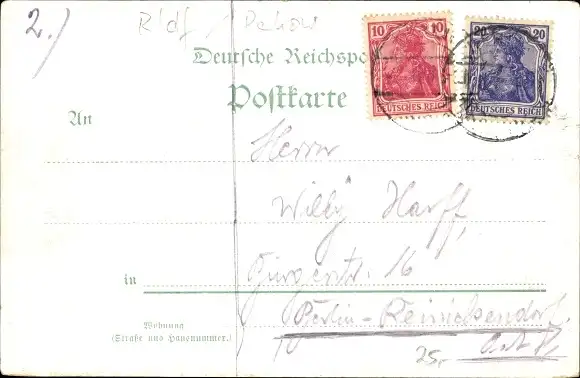 2.)
Deutsche Reichspo
Postkarte
10 10
DEUTSCHES REICH
20 20
DEUTSCHES REICH
An
Herrn
Willy Harff,
in
16
Berlin-Reinickendorf
Wohnung
(Straße und Hausnummer.)
25.-